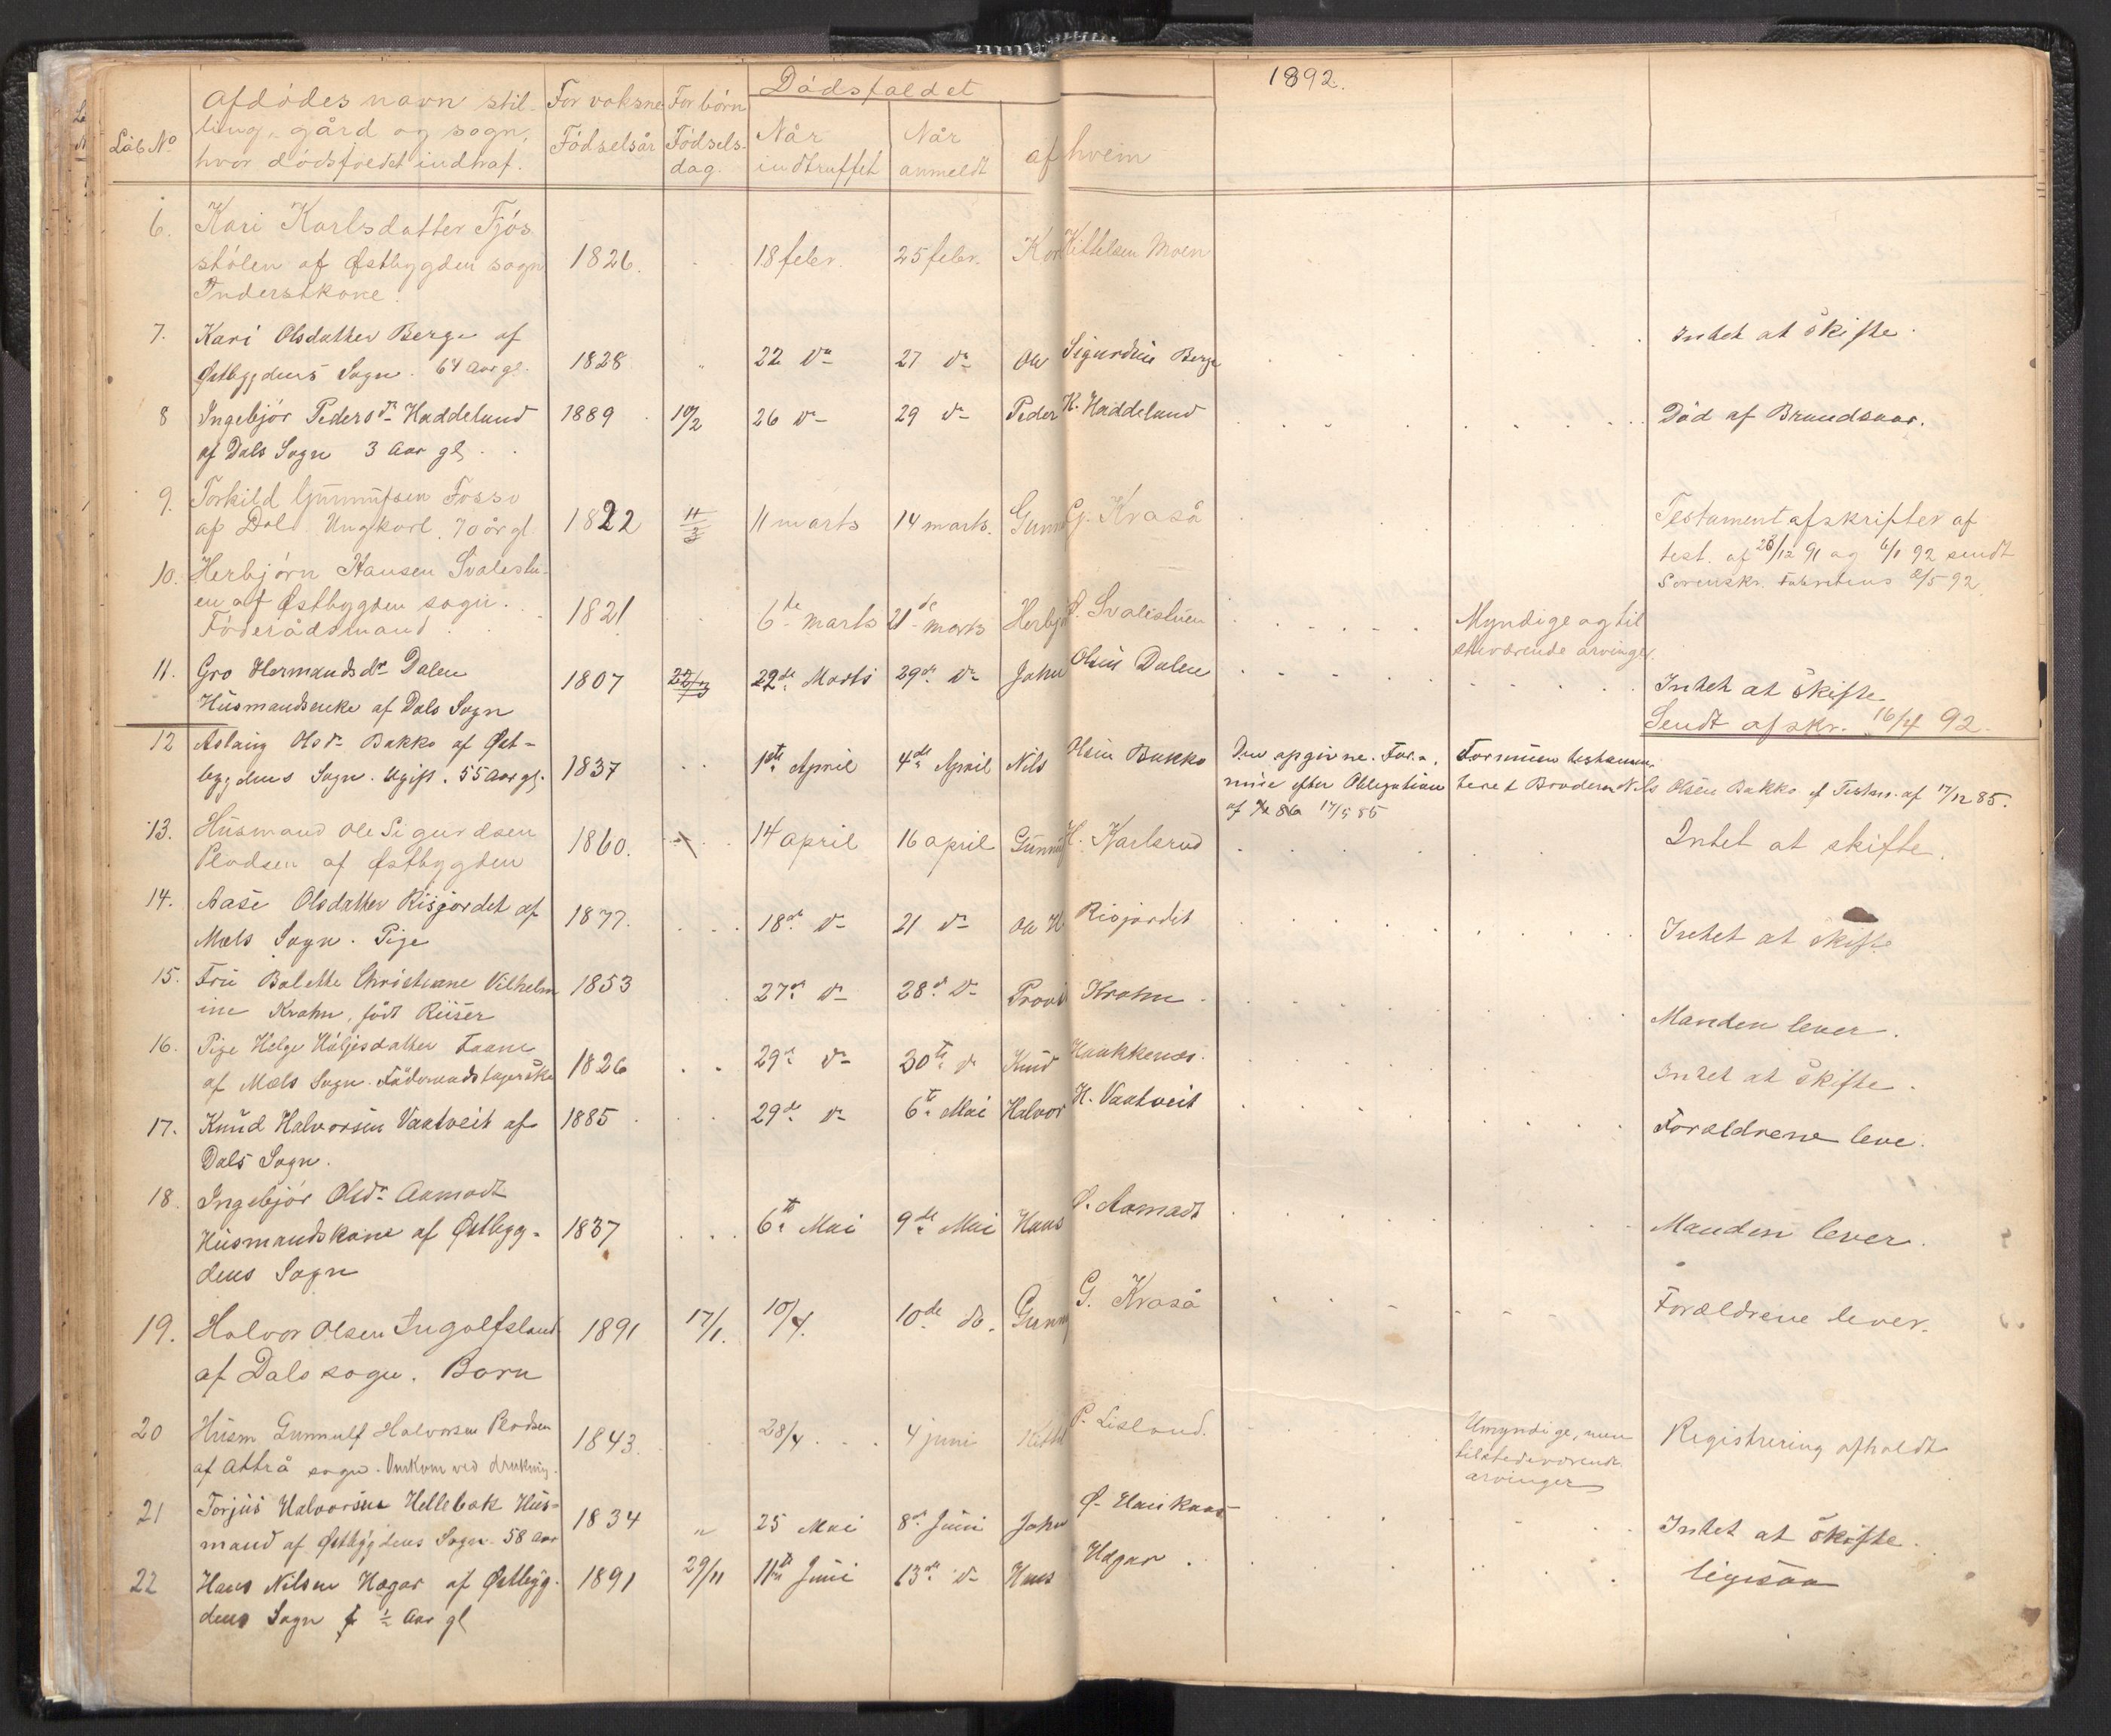 1892.
Löb No
Afdödes navn stil-
ling, gård og sogn,
hvor dödsfaldet indtraf.
For voksne
Födselsår
For börn
Födsels-
dag.
Dödsfaldet
Når
indtruffet
Når
anmeldt
af hvem
6. Kari Karlsdatter Fjös
stölen af Østbygden sogn 1826. 18 febr. 25 febr. Kittelsen Moen
Inderstkone.
7. Kari Olsdatter Berge af Intet at skifte.
Østbygdens Sogn. 64 Aar gl. 1828 " 22 do 27 do Ole Sigurdsen Berge
8 Ingebjör Pedersdr Haddeland 1889 10/2 26 do 29 do Peder K. Haddeland Död af Brandsaar.
af Dals Sogn 3 Aar gl.
9. Torkild Gunnufsen Fosso
af Dal. Ungkarl. 70 år gl. 1822 11/3 11 marts 14 marts. G. Kraså Testamentafskrifter af
test. af 28/12 91 og 6/1 92 sendt
Sorenskr. 2/5 92.
10. Herbjörn Hansen Svalestu-
en af Østbygden sogn. 1821 6te marts 21de marts Svalestuen Myndige og til
Föderådsmand. stedværende arvinger.
11. Gro Hermandsdr Dalen 1807 22/3 22de Marts 29de do John Olsen Dalen Intet at skifte.
Husmandsenke af Dals Sogn Sendt afskr. 16/4 92.
12 Aslaug Olsdr Bakko af Øst-
bygdens Sogn. Ugift. 55 Aar gl. 1837 1ste April 4de April Nils Olsen Bakko Den opgivne For-
mue efter Obligation
af 86 17/5 85
Formuen testamen-
teret Broderen Nils Olsen Bakko af Testm. af 17/12 85.
13. Husmand Ole Sigurdsen
Plodsen af Østbygden 1860. 14 april 16 april H. Karlsrud Intet at skifte.
14. Aase Olsdatter Risjordet af 1877. 18de do 21 do Ole H. Risjordet Intet at skifte
Mæls Sogn. Pige
15. Fru Bolette Christiane Vilhelm 1853 27de do 28de do Krohn
ine Krohn, födt Riiser Manden lever.
16. Pige Helge Haljesdatter Faane
af Mæls Sogn. 1826 29de do 30te do Knud Haakkenæs. Intet at skifte.
17. Knud Halvorsen Vaatveit af 1885 29de do 6te Mai Halvor H. Vaatveit Forældrene leve.
Dals Sogn.
18. Ingebjör Olsdr Aamodt
Husmandskone af Østbyg- 1837 6te Mai 9de Mai Hans O. Aamodt Manden lever.
dens Sogn
19. Halvor Olsen Ingolfsland 1891 17/1. 10/4. 10de do. G. Kraså Forældrene lever.
af Dals sogn. Barn
20 Husm. Gunnulf Halvorsen Plodsen 1843. 28/4 4 juni Kittel P. Lisland. Umyndige, men
tilstedeværende
arvinger
Registrering afholdt
af Attrå sogn. Omkom ved drukning.
21 Torjus Halvorsen Hellebæk Hus-
mand af Østbygdens Sogn. 58 Aar 1834 " 25 Mai 8de Juni John Intet at skifte.
22 Hans Nilsen Hægar af Østbyg- 1891 29/11 11te Juni 13de do Hans Hægar. ligesaa
dens Sogn ½ Aar gl